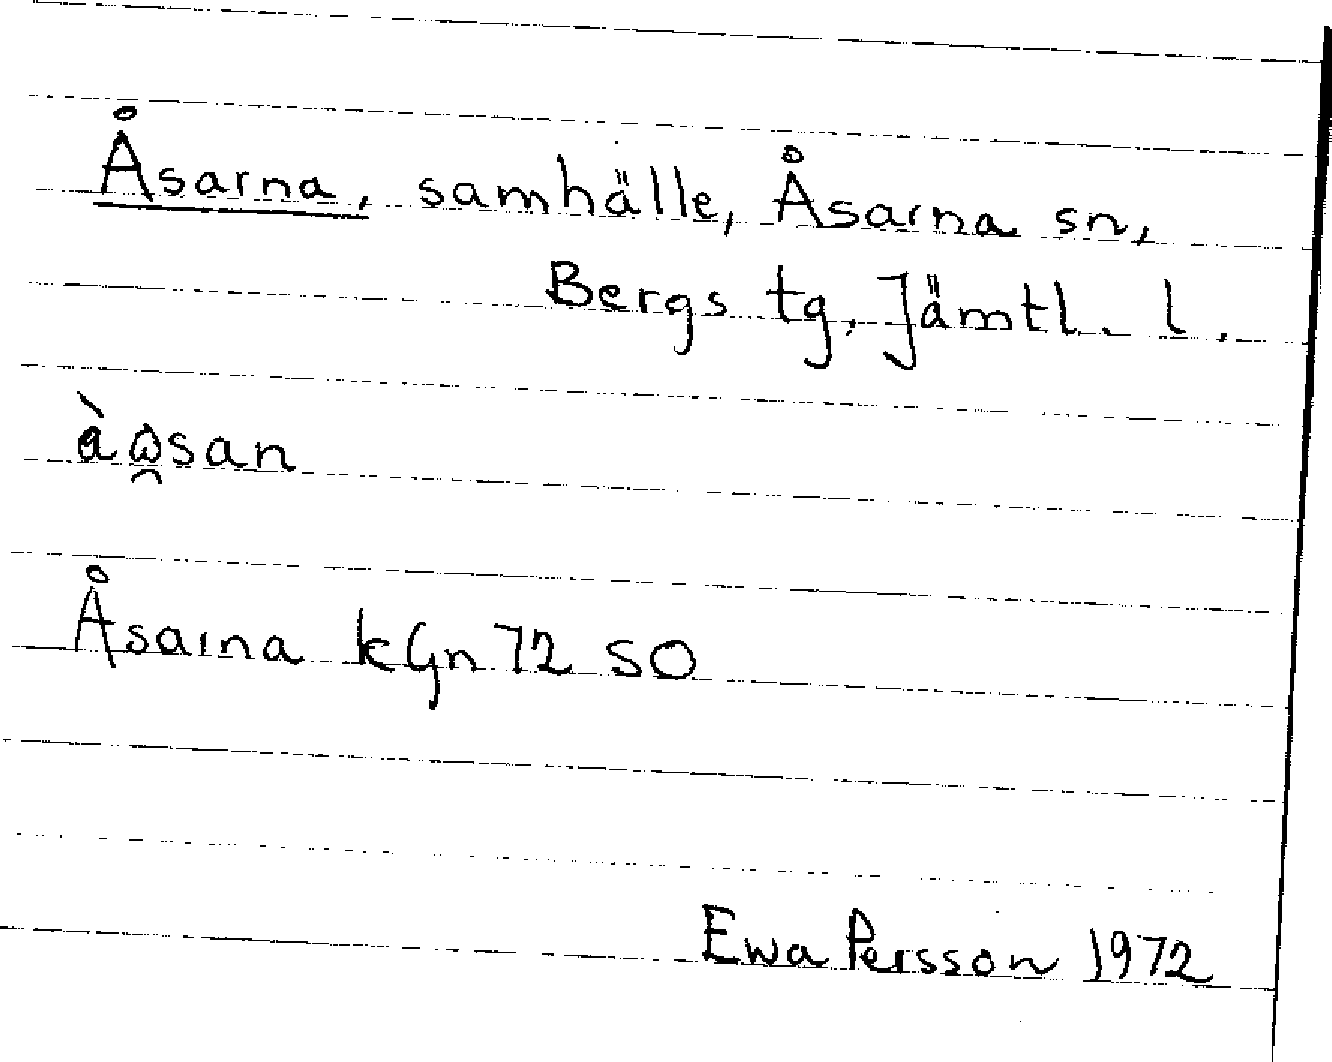 Åsarna, samhälle, Åsarna sn,
Bergs tg, Jämtl. l.
Åsarna kGn 72 SO
Ewa Persson 1972